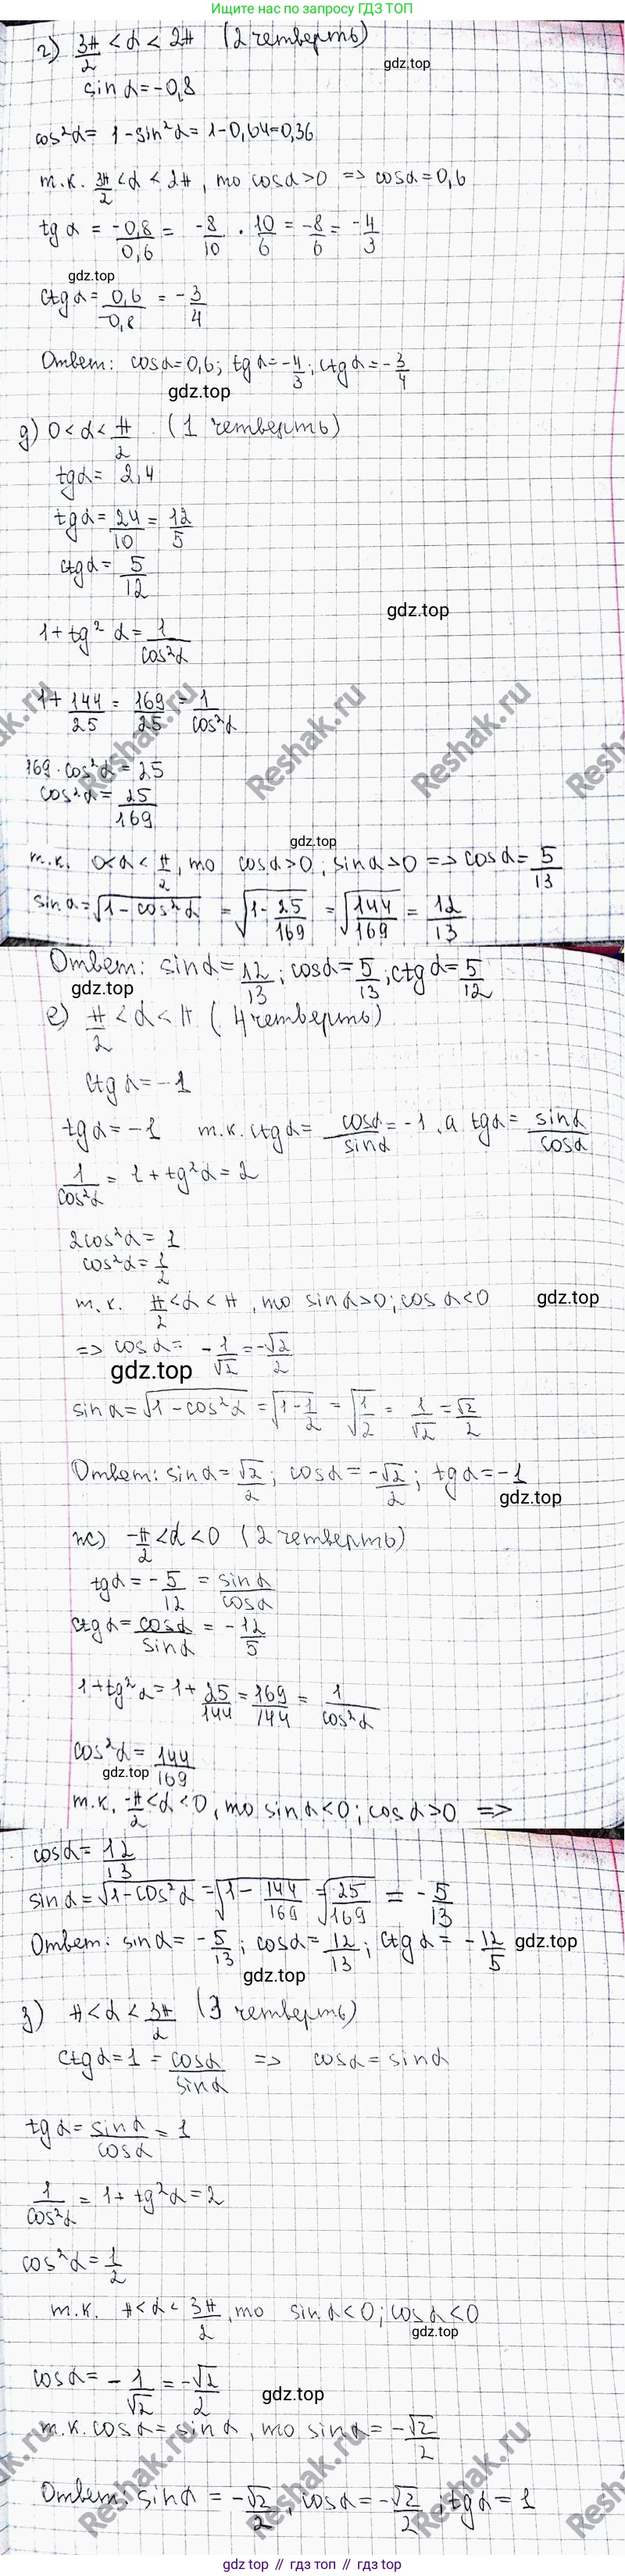 Ищите нас по запросу ГДЗ ТОП
г) 3π/2 < α < 2π (2 четверть)
gdz.top
sin α = -0,8
cos²α = 1 - sin²α = 1 - 0,64 = 0,36
т.к. 3π/2 < α < 2π, то cos α > 0 => cos α = 0,6
tg α = -0,8/0,6 = -8/10 · 10/6 = -8/6 = -4/3
gdz.top
ctg α = 0,6/-0,8 = -3/4
Ответ: cos α = 0,6; tg α = -4/3; ctg α = -3/4
gdz.top
д) 0 < α < π/2 . (1 четверть)
tg α = 2,4
tg α = 24/10 = 12/5
ctg α = 5/12
gdz.top
1 + tg² α = 1/cos²α
1 + 144/25 = 169/25 = 1/cos²α
Reshak.ru
Reshak.ru
169 · cos²α = 25
cos²α = 25/169
gdz.top
т.к. 0 < α < π/2, то cos α > 0; sin α > 0 => cos α = 5/13
sin α = √(1 - cos²α) = √(1 - 25/169) = √(144/169) = 12/13
Ответ: sin α = 12/13; cos α = 5/13; ctg α = 5/12
gdz.top
е) π/2 < α < π (4 четверть)
ctg α = -1
tg α = -1 т.к. ctg α = cos α/sin α = -1, а tg α = sin α/cos α
1/cos²α = 1 + tg²α = 2
2cos²α = 1
cos²α = 1/2
т.к. π/2 < α < π, то sin α > 0; cos α < 0
gdz.top
=> cos α = -1/√2 = -√2/2
gdz.top
sin α = √(1 - cos²α) = √(1 - 1/2) = √(1/2) = 1/√2 = √2/2
Ответ: sin α = √2/2; cos α = -√2/2; tg α = -1
gdz.top
ж) -π/2 < α < 0 (2 четверть)
tg α = -5/12 = sin α/cos α
ctg α = cos α/sin α = -12/5
1 + tg²α = 1 + 25/144 = 169/144 = 1/cos²α
cos²α = 144/169
gdz.top
т.к. -π/2 < α < 0, то sin α < 0; cos α > 0 =>
cos α = 12/13
sin α = √(1 - cos²α) = √(1 - 144/169) = √(25/169) = -5/13
Ответ: sin α = -5/13; cos α = 12/13; ctg α = -12/5
gdz.top
gdz.top
з) π < α < 3π/2 (3 четверть)
ctg α = 1 = cos α/sin α => cos α = sin α
tg α = sin α/cos α = 1
1/cos²α = 1 + tg²α = 2
cos²α = 1/2
т.к. π < α < 3π/2, то sin α < 0; cos α < 0
gdz.top
cos α = -1/√2 = -√2/2
gdz.top
т.к. cos α = sin α, то sin α = -√2/2
Reshak.ru
Ответ: sin α = -√2/2, cos α = -√2/2, tg α = 1
gdz top // гдз топ // гдз top